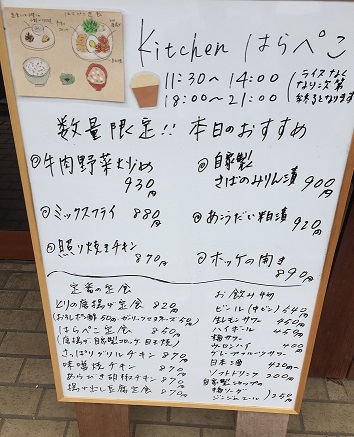 はらぺこ定食
Kitchen はらぺこ
11:30~14:00
18:00~21:00
(ライスなく
なり次第
終了となります
数量限定!! 本日のおすすめ
◎牛肉野菜炒め
930円
◎ミックスフライ 880円
◎照り焼きチキン
870円
◎自家製
さばのみりん漬 900円
◎あこうだい粕漬
920円
◎ホッケの開き
890円
定番の定食
とりの唐揚げ定食 820円
(おろしポン酢 50円 ガーリックマヨネーズ 50円)
はらぺこ定食 850円
(唐揚げ 自家製コロッケ 目玉焼)
さっぱりグリルチキン 870円
味噌焼チキン 870円
あらびき胡椒チキン 870円
揚げ出し豆腐定食 870円
お飲み物
ビール(中ビン) 540円
生レモンサワー 450円
ハイボール 450円
梅サワー
ウーロンハイ 400円
グレープフルーツサワー
日本酒 420円~
ソフトドリンク 200円
自家製シロップの
梅ソーダ
ジンジャエール 250円